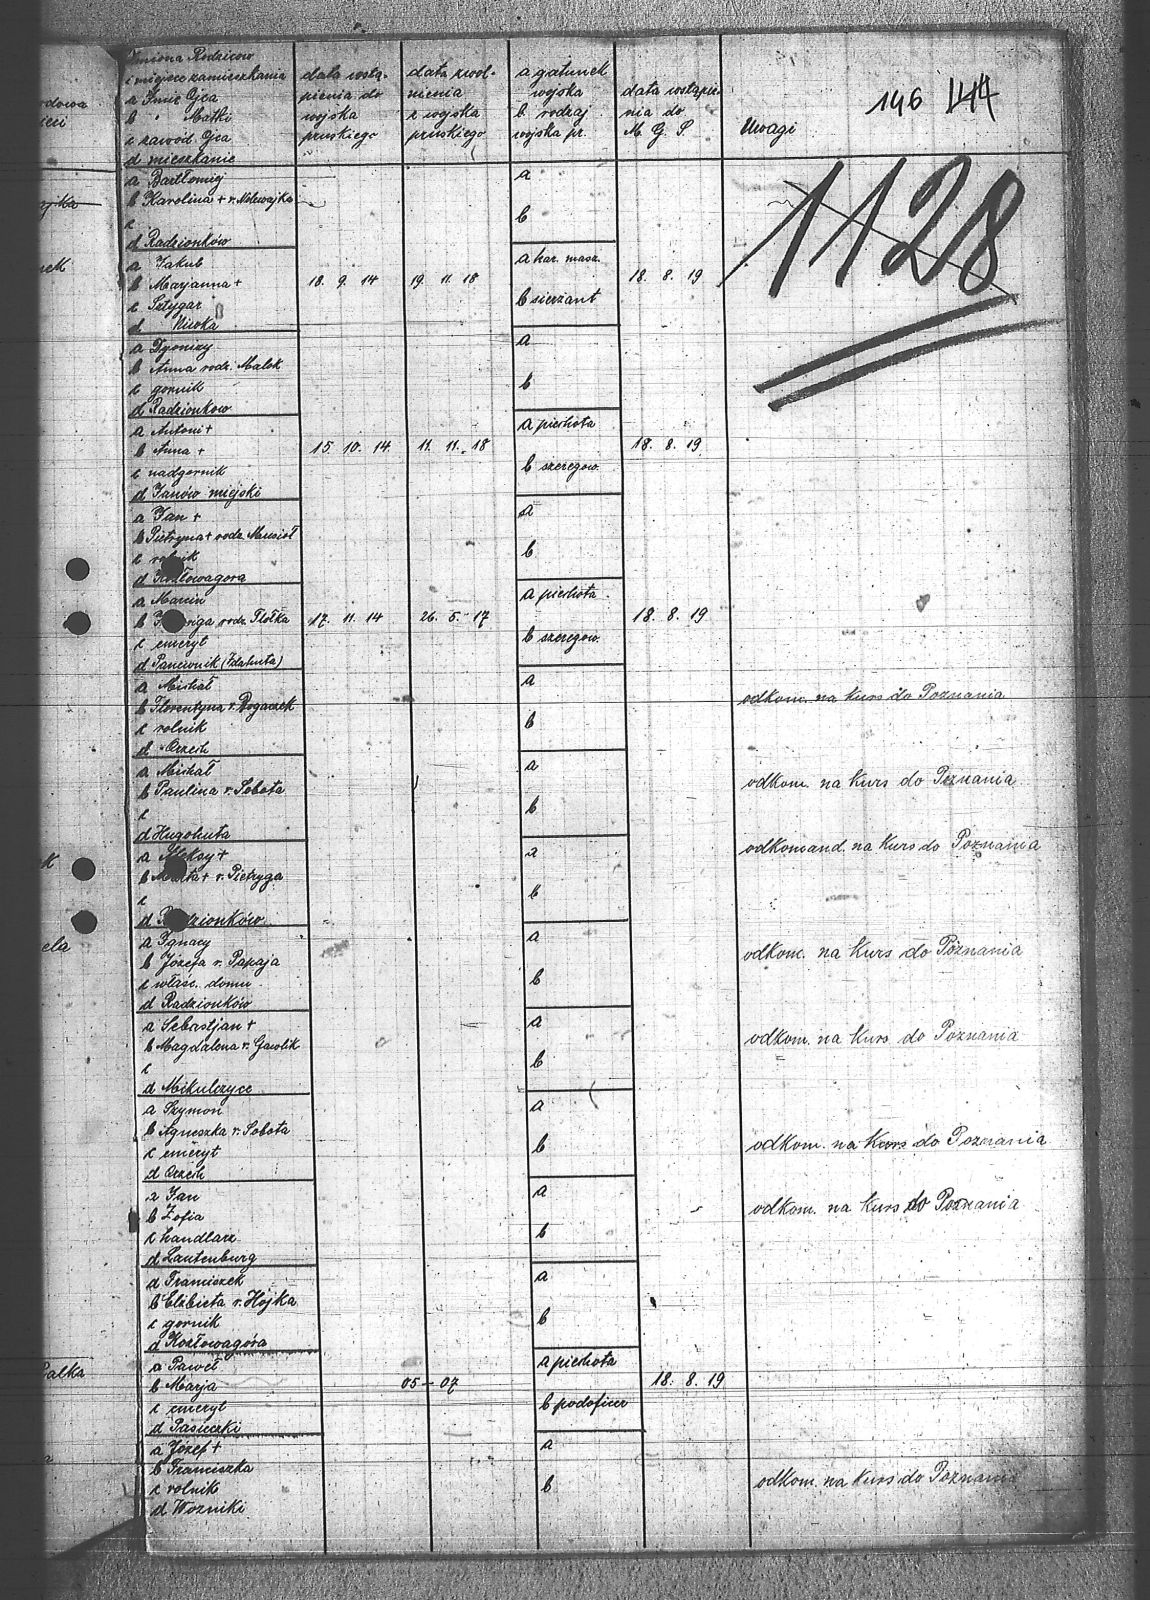 Imiona Rodziców
i miejsce zamieszkania
a Imie Ojca
b " Matki
c zawód Ojca
d mieszkanie
data wstą-
pienia do
wojska
pruskiego
data zwol-
nienia
z wojska
pruskiego
a gatunek
wojska
b rodzaj
wojska pr.
data wstąpie-
nia do
M. G. S.
Uwagi
146 144
1128
a Bartłomiej
b Karolina + r.
c
d Radzionków
a
b
a Jakub
b Maryanna +
c Sztygar
d
18. 9. 14
19. 11. 18
a kar. masz.
b sierżant
18. 8. 19
a Dyonizy
b Anna rodz. Malok
c gornik
d Radzionkow
a
b
a Antoni +
b Anna +
c nadgornik
d Janów miejski
15. 10. 14
11. 11. 18
a piechota
b szeregow.
18. 8. 19
a Jan +
b + rodz. Musioł
c rolnik
d Kozłowagora
a
b
a Marcin
b rodz. Flotka
c emeryt
d Panewnik (Idahuta)
17. 11. 14
26. 5. 17
a piechota
b szeregow.
18. 8. 19
a Michał
b Florentyna r. Rogaczek
c rolnik
d Orzech
a
b
odkom. na kurs do Poznania
a Michał
b Paulina r. Sobota
c
d Hugohuta
a
b
odkom. na kurs do Poznania
a Aleksy +
b Marta + r. Pietryga
c
d Radzionków
a
b
odkomand. na kurs do Poznania
a Ignacy
b Józefa r. Papaja
c właśc. domu
d Radzionków
a
b
odkom. na kurs do Poznania
a Sebastjan +
b Magdalena r. Gawlik
c
d Mikulczyce
a
b
odkom. na kurs do Poznania
a Szymon
b Agnieszka r. Sobota
c emeryt
d Orzech
a
b
odkom. na kurs do Poznania
a Jan
b Zofia
c handlarz
d Lautenburg
a
b
odkom. na kurs do Poznania
a Franciszek
b Elżbieta r. Hojka
c gornik
d Kozłowagóra
a
b
a Paweł
b Marja
c emeryt
d Pasieczki
05 – 07
a piechota
b podoficer
18. 8. 19
a Józef +
b Franciszka
c rolnik
d Wozniki
a
b
odkom. na kurs do Poznania